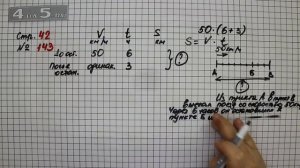 4 по 5
Стр. 42
№ 143
V t S
км/ч ч км
До ост. 50 6
После остан. одинак. 3
?
50 · (6 + 3)
S = V · t
50 км/ч
A Б B
?
Из пункта А в пункт В
выехал поезд со скоростью 50
Через 6 часов он остановился в
пункте Б